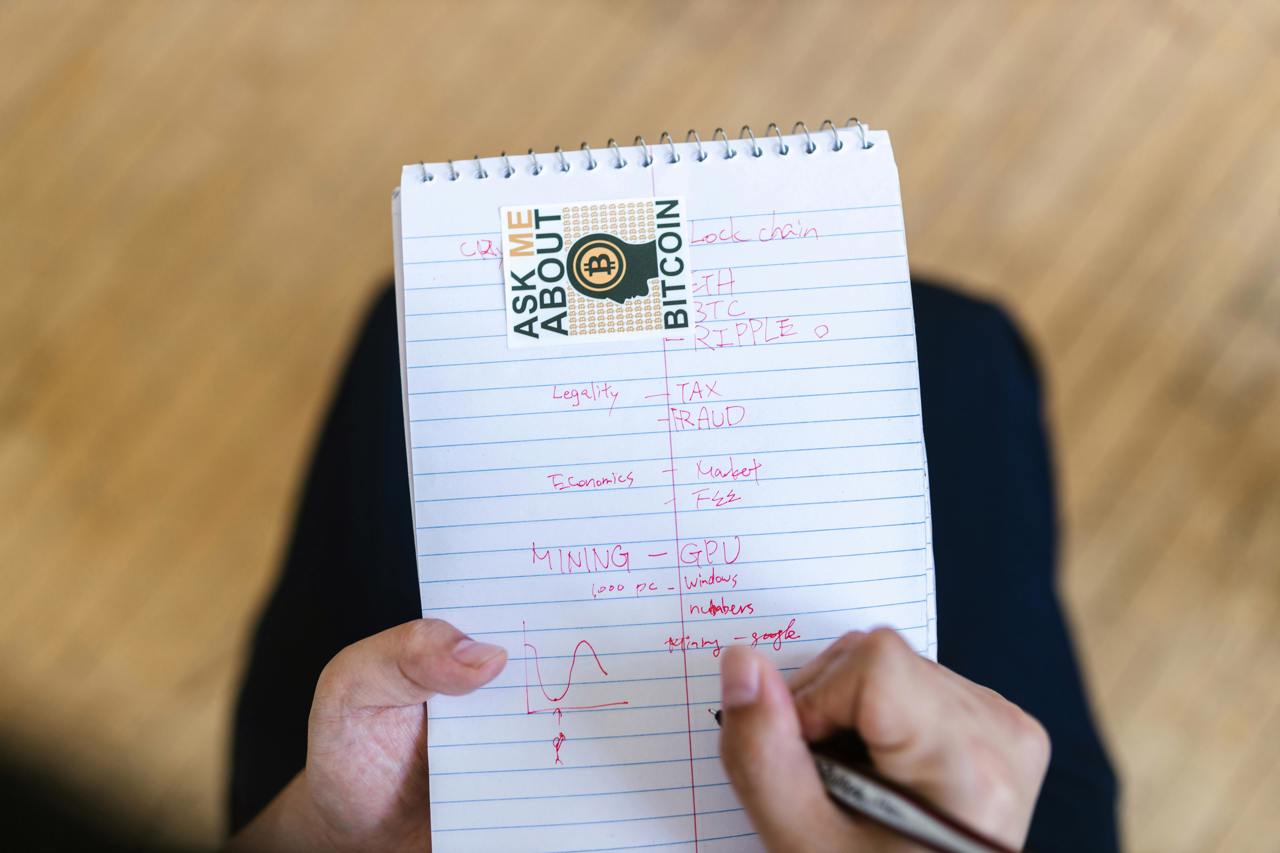 ASK ME
ABOUT
BITCOIN
lock chain
ETH
BTC
RIPPLE
Legality — TAX
- FRAUD
Economics - Market
- FEE
MINING — GPU
1,000 pc - Windows
numbers
Mining - google